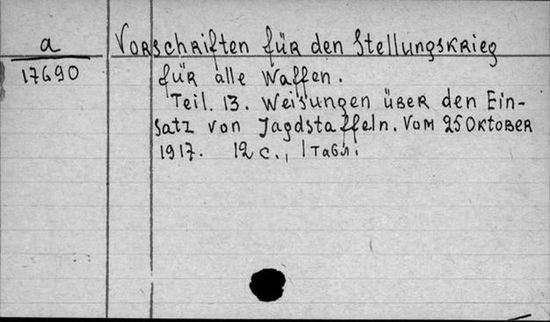 a
17690
Vorschriften für den Stellungskrieg
für alle Waffen.
Teil. 13. Weisungen über den Ein-
satz von Jagdstaffeln. Vom 25 Oktober
1917. 12 с., 1 табл.